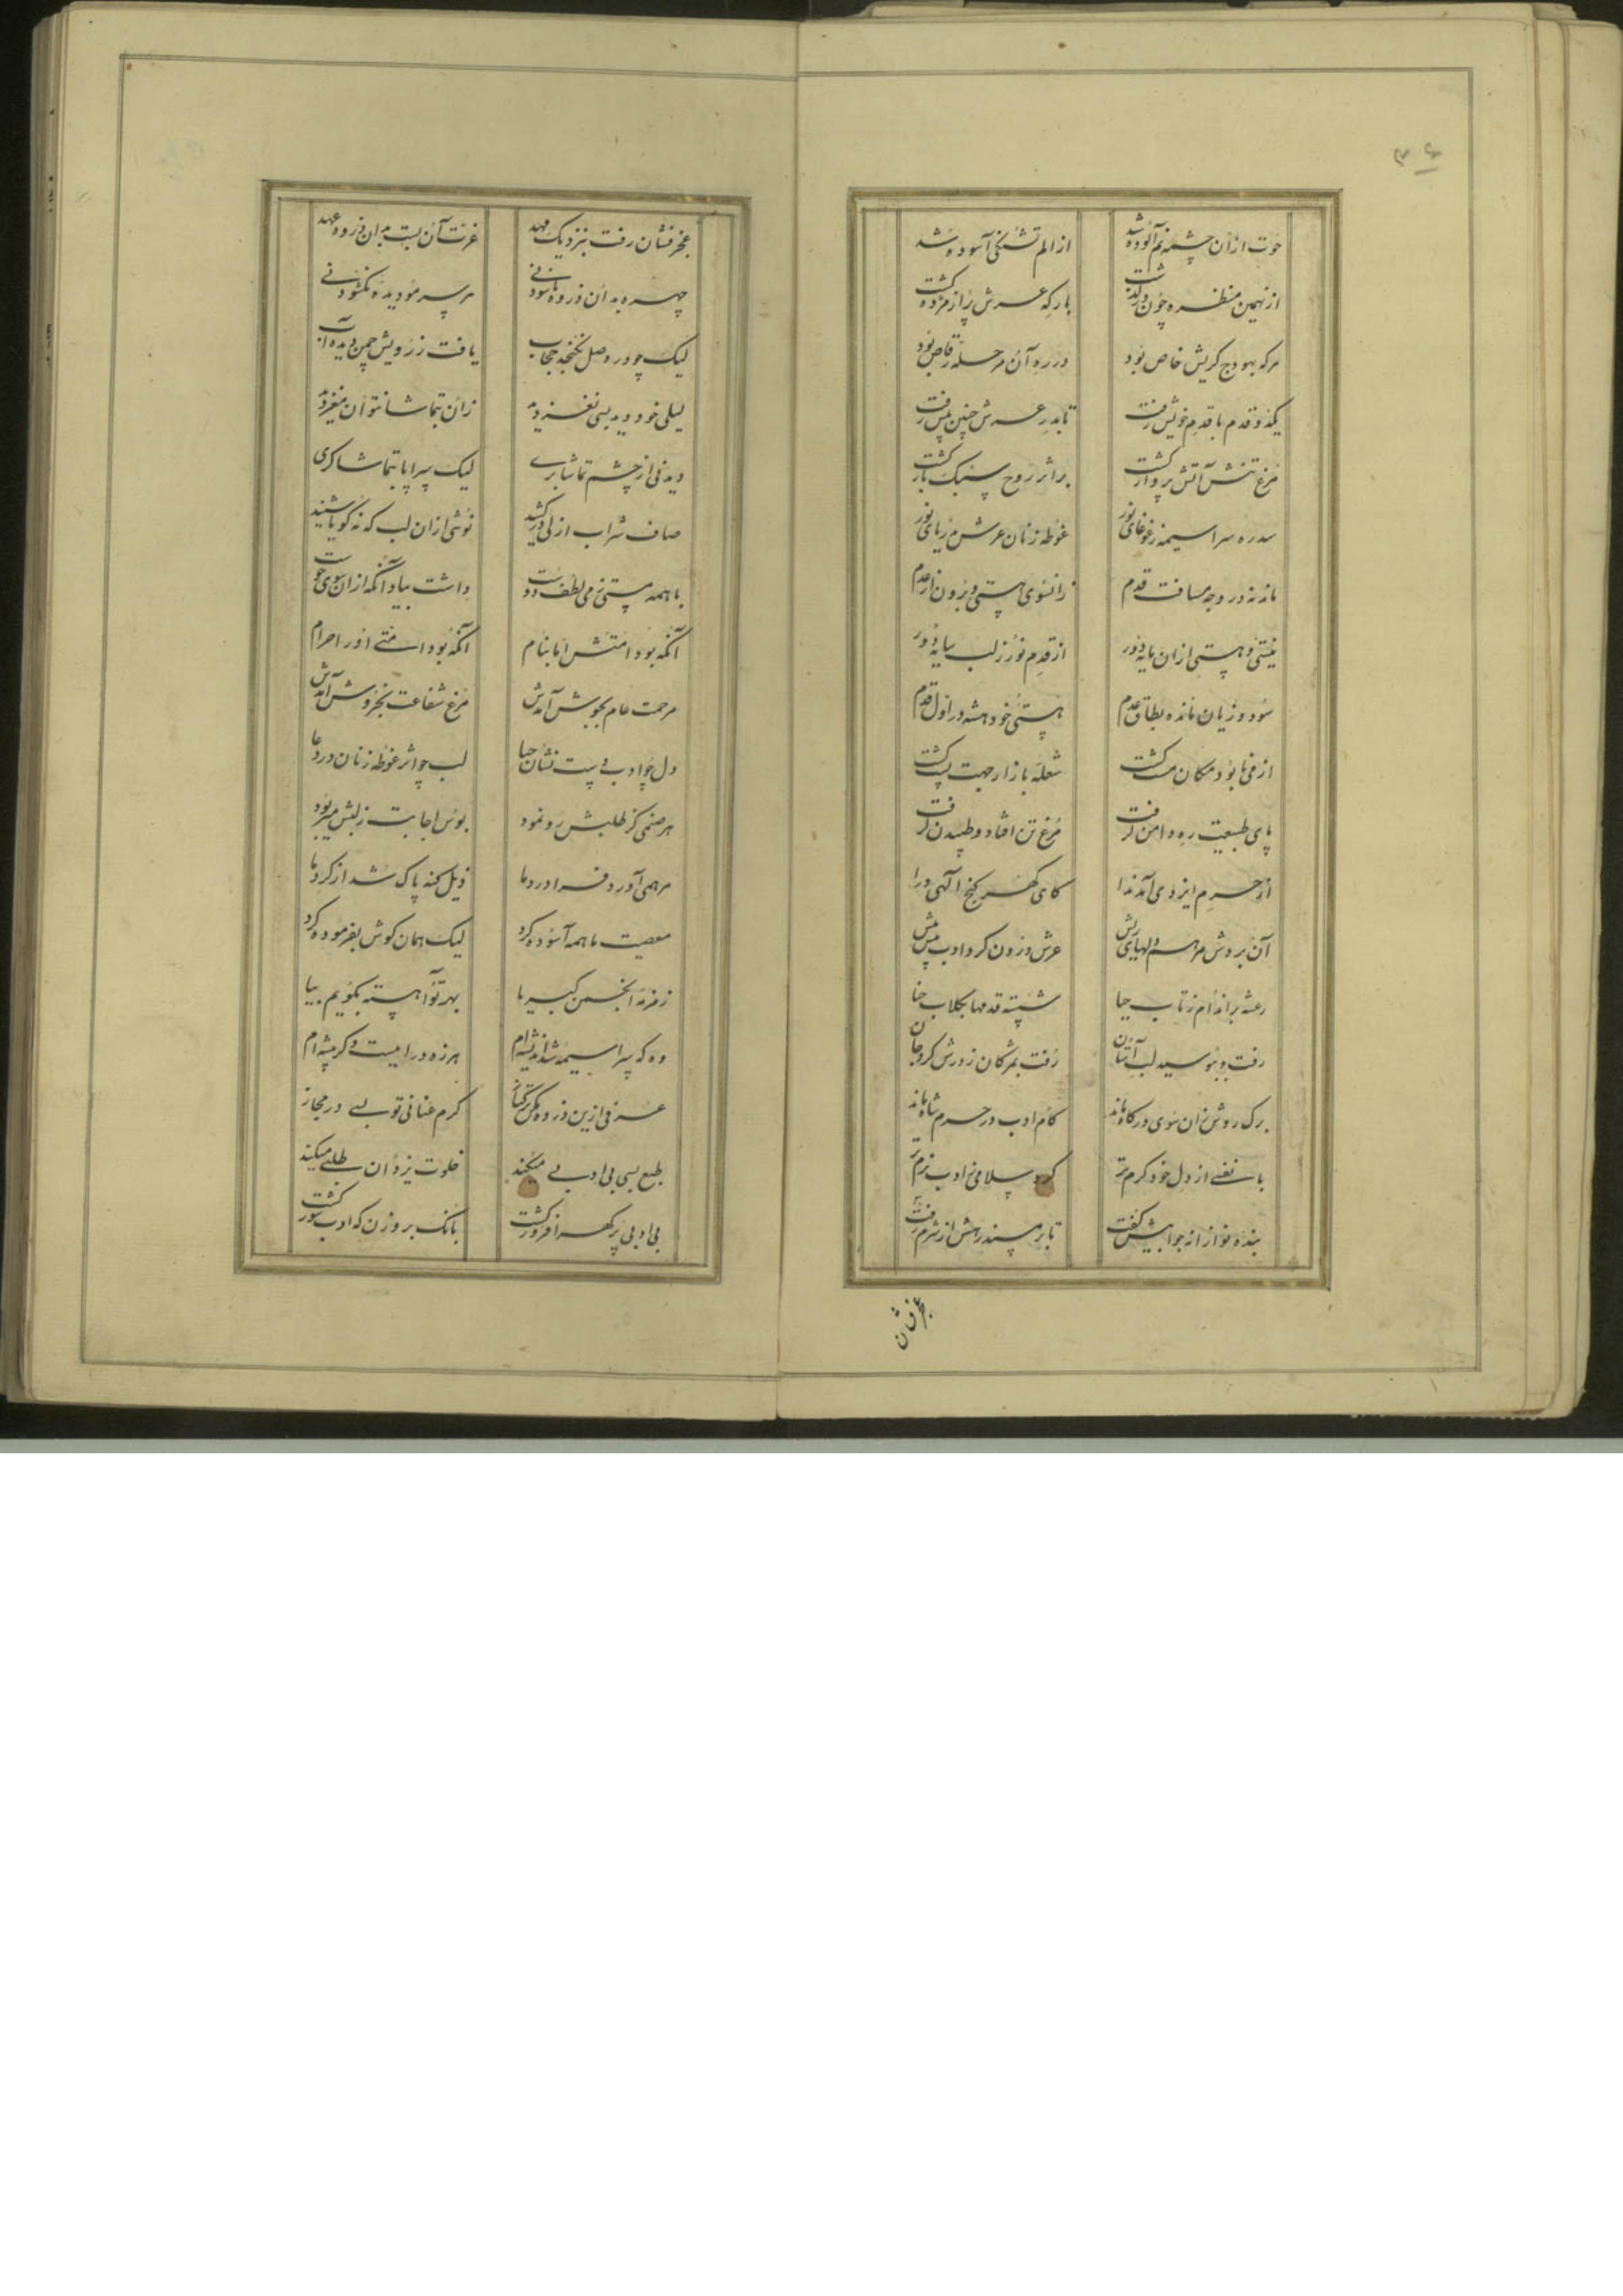 ۳۶
حوت ازان چشمه نم آلوده شد از الم تشنگی آسوده شد
از نهمین منظره چون در گذشت بارگه عرش پر از مژده گشت
مرکه بهودج کریش خاص بود در ره آن مرحله رقاص بود
یکدو قدم با قدم خویش رفت تا بدر عرش چنین پیش رفت
مرغ تنش آتش پرواز گشت بر اثر روح سبک بار گشت
سدره سراسیمه ز غوغای نور غوطه زنان عرش در یای نور
مانده در وجه مسافت قدم زانسوی هستی و برون از عدم
نیستی و هستی ازان مایه دور از قدم نور زلب سایه دور
سود و زیان مانده بطاق عدم هستی خود هشته در اول قدم
از می نابود مکان مست گشت شعله بازار جهت پست گشت
پای طبیعت ره دامن گرفت مرغ تن افتاد و طپیدن گرفت
از حرم ایزدی آمد ندا کای گهر گنج الهی درا
آن بروش مرهم دلهای ریش عرش درون کرد و ادب پیش پیش
رعشه بر اندام ز تاب حیا شسته قدمها بگلاب حنا
رفت و ببوسید لب آستان رفت بمژگان ز درش گرد جان
برگ روش زان سوی درگاه ماند کام ادب در حرم شاه ماند
با نفسی از دل خود گرم تر کرد سلامی ز ادب نرم تر
بنده نواز انه جوابیش گفت تا بر سند رهش از شرم رفت
عجز فشان
عجز فشان رفت بنزدیک مهد عزت آن بست بدان ذروه عهد
چهره بدان ذروه نا سودنی مر سر مو دیده نگشودنی
لیک چو در وصل نگنجد حجاب یافت ز رویش چمن دیده آب
لیلی خود دید بسی نغز دید زان تماشا نتوان مغز دید
دیدنی از چشم تماشا بری لیک سراپا تماشا گری
صاف شراب از لی در کشید نوشی ازان لب که نه گویا شنید
با همه مستی ز می لطف دوست داشت بیاد آنکه ازان سوی جوست
آنکه بود امتش اما بنام آنکه بود امتی اندر احرام
مرحمت عام بجوش آمدش مرغ شفاعت بخروش آمدش
دل چو ادب دست نشان حیا لب چو اثر غوطه زنان در دعا
هر صنمی کز طلبش رو نمود بوس اجابت ز لبش میربود
مرهمی آورد فرا درد ما ذیل گنه پاک شد از گرد ما
معصیت ما همه آسوده کرد لیک همان گوش بفرموده کرد
زمزمه انجمن کبریا بهر تو آهسته بگویم بیا
وه که سراسیمه شد اندیشه ام هرزه درا نیست دگر پیشه ام
عرفی ازین ذروه مکن ترکتاز گرم عنانی تو بسی در مجاز
طبع بسی بی ادبی میکند خلوت یزدان طلبی میکند
بی ادبی پر گهر افروز گشت بانک بر وزن که ادب سوز گشت